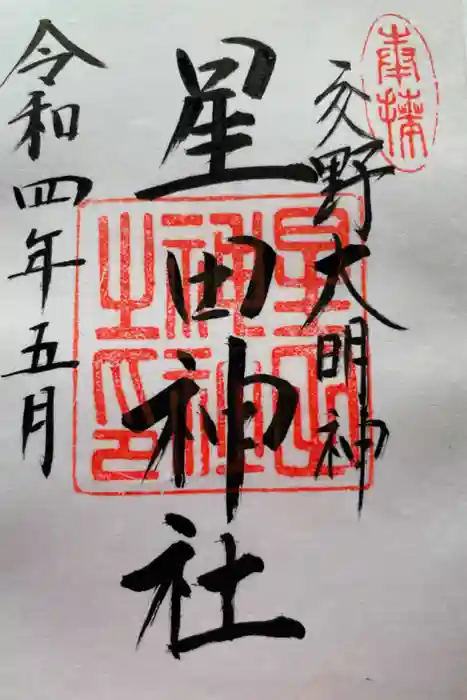 奉拝
交野大明神
星田神社
星田神社之印
令和四年五月